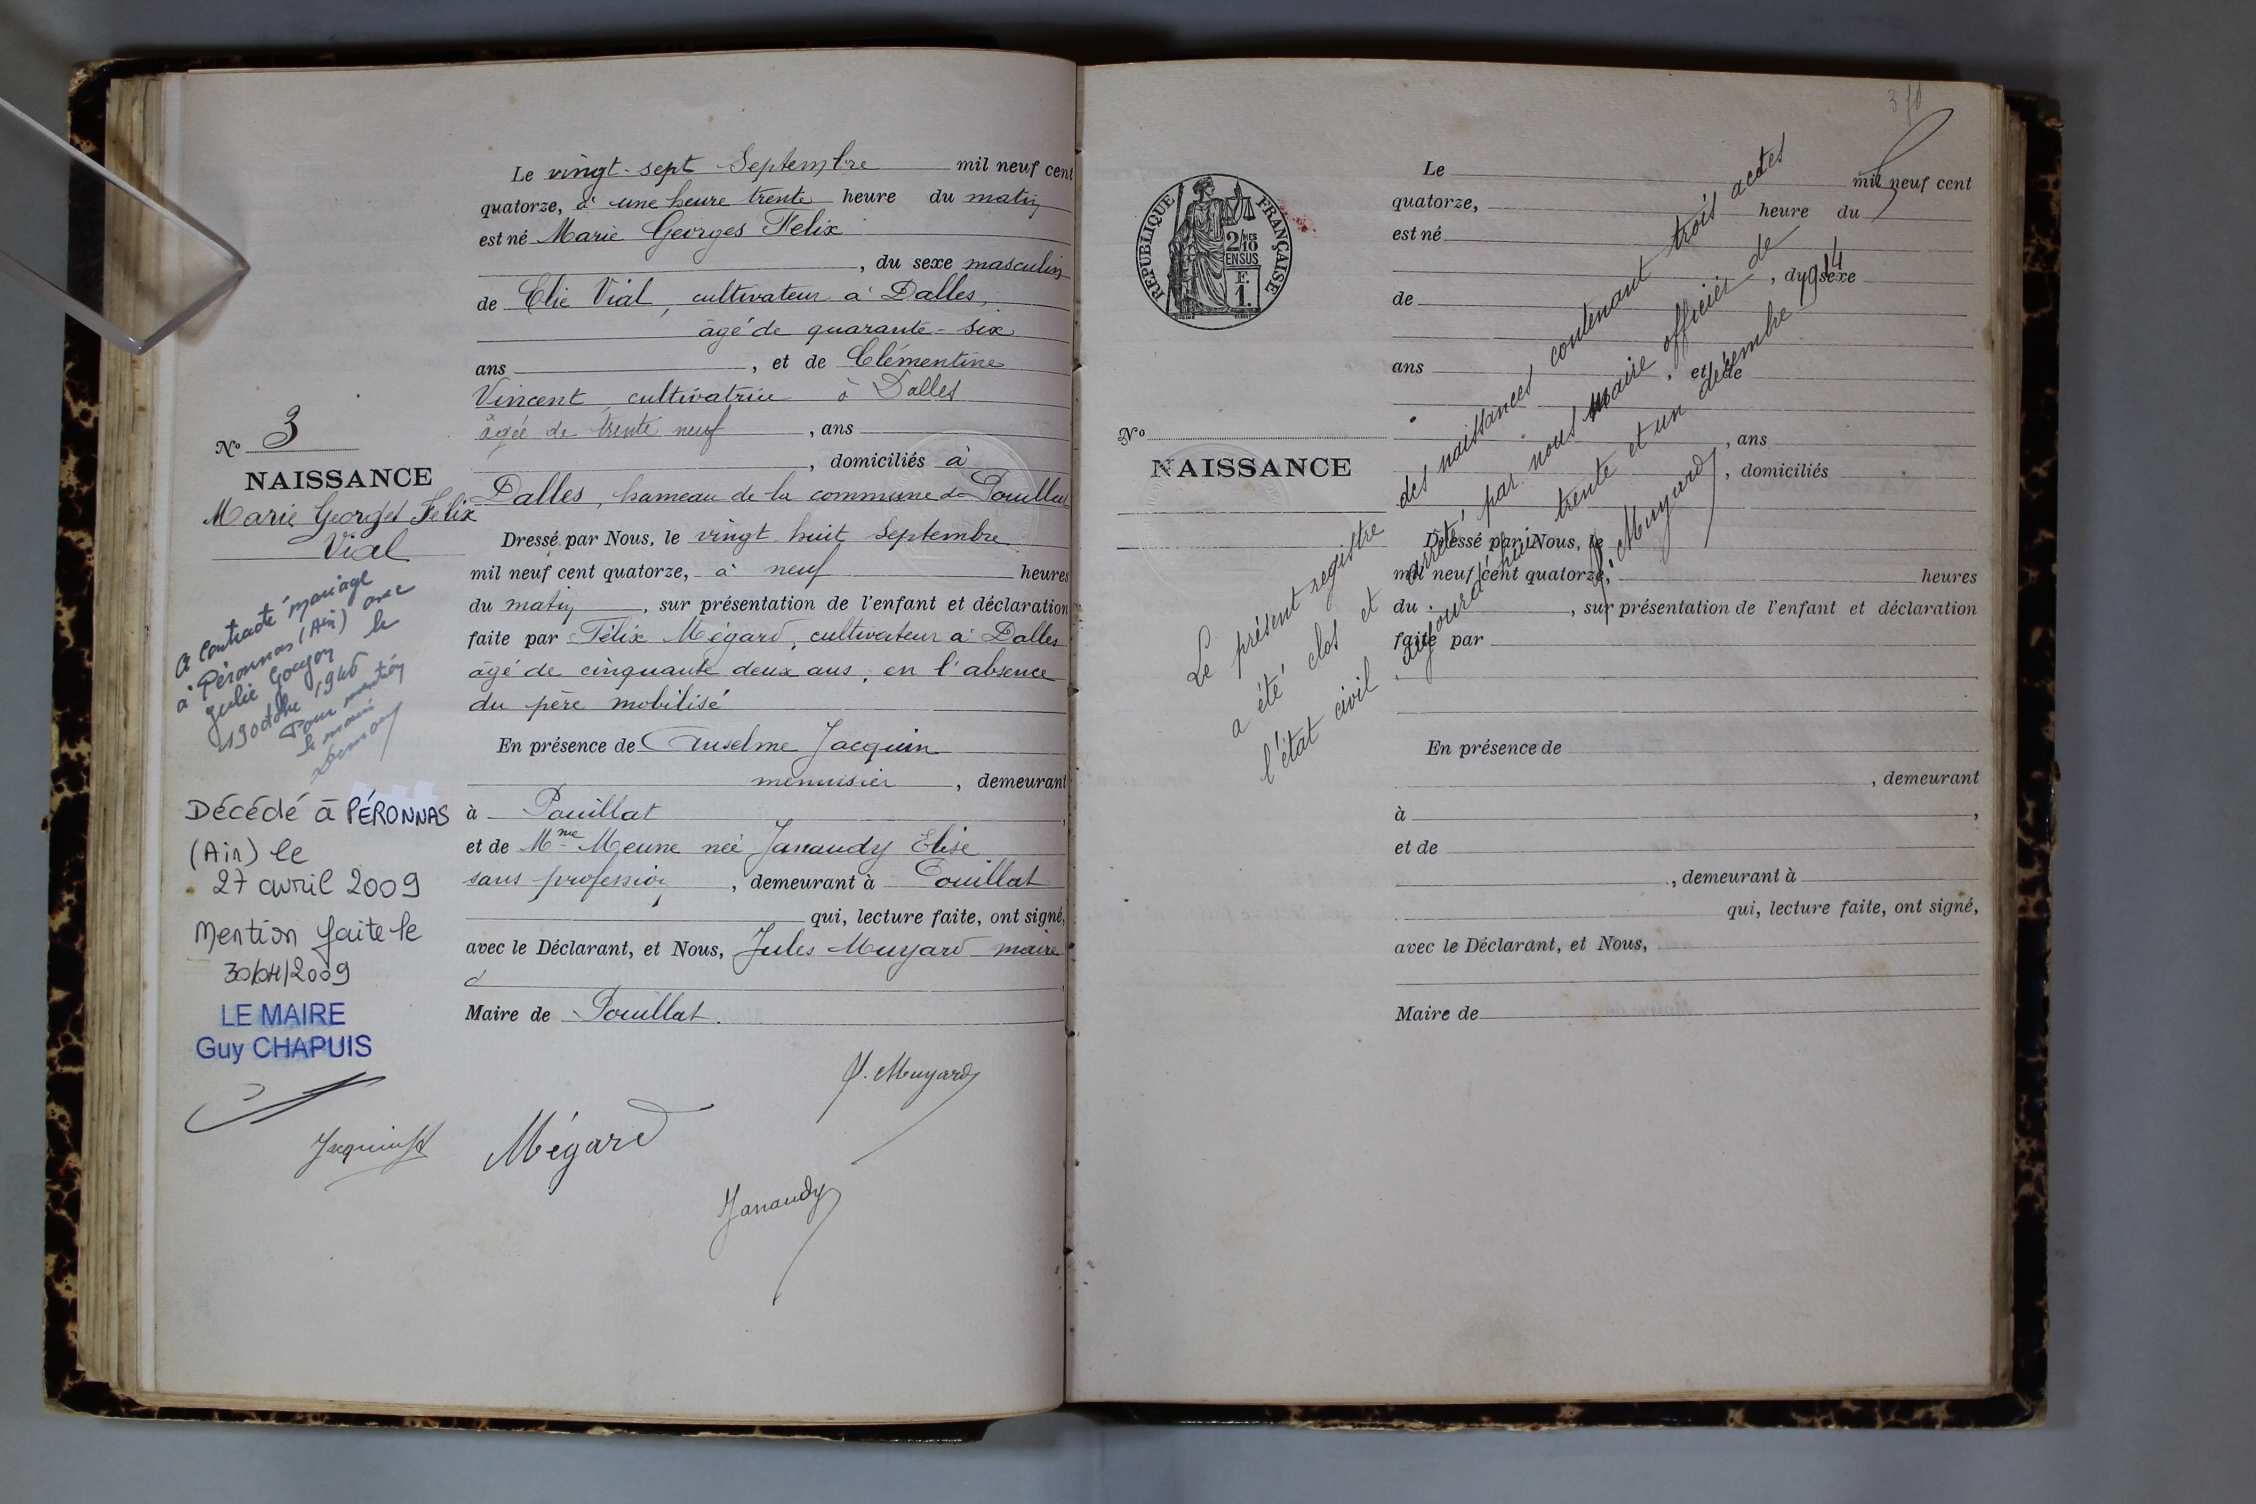 Le vingt-sept Septembre mil neuf cent
quatorze, à une heure trente heure du matin
est né Marie Georges Felix
, du sexe masculin
de Elie Vial, cultivateur à Dalles,
âgé de quarante-six
ans , et de Clémentine
Vincent cultivatrice à Dalles
âgée de trente neuf , ans
, domiciliés à
Dalles, hameau de la commune de Pouillat
Dressé par Nous, le vingt huit Septembre
mil neuf cent quatorze, à neuf heures
du matin , sur présentation de l'enfant et déclaration
faite par Félix Mégard, cultivateur à Dalles
âgé de cinquante deux ans, en l'absence
du père mobilisé
En présence de Anselme Jacquin
menuisier , demeurant
à Pouillat ,
et de Mme Meune née Janaudy Elise
sans profession , demeurant à Pouillat
qui, lecture faite, ont signé,
avec le Déclarant, et Nous, Jules Muyard maire
Maire de Pouillat.
J. Muyard
Jacquin
Mégard
Janaudy
No 3
NAISSANCE
Marie Georges Felix
Vial
A contracté mariage
à Péronnas (Ain) avec
Julie Goyon le
19 octobre 1946
Pour mention
le maire
Décédé à PÉRONNAS
(Ain) le
27 avril 2009
Mention faite le
30/04/2009
LE MAIRE
Guy CHAPUIS
RÉPUBLIQUE FRANÇAISE
2/10 MES
EN SUS
F.
1.
No
NAISSANCE
Le mil neuf cent
quatorze, heure du
est né
, du sexe
de
ans , et de
, ans
, domiciliés
Dressé par Nous, le
mil neuf cent quatorze, heures
du , sur présentation de l'enfant et déclaration
faite par
En présence de
, demeurant
à ,
et de
, demeurant à
qui, lecture faite, ont signé,
avec le Déclarant, et Nous,
Maire de
Le présent registre des naissances contenant trois actes
a été clos et arrêté, par nous maire officier de
l'état civil aujourd'hui trente et un décembre 1914
J. Muyard